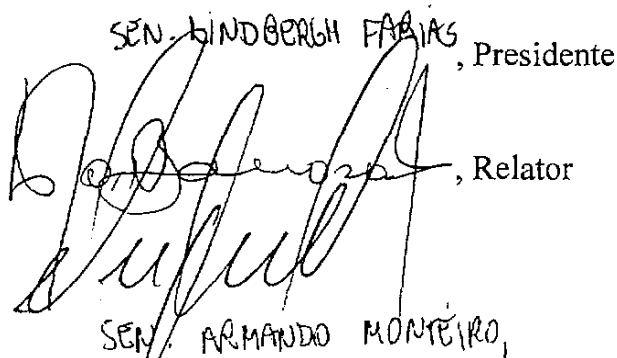 SEN. LINDBERGH FARIAS, Presidente
, Relator
SEN. ARMANDO MONTEIRO,